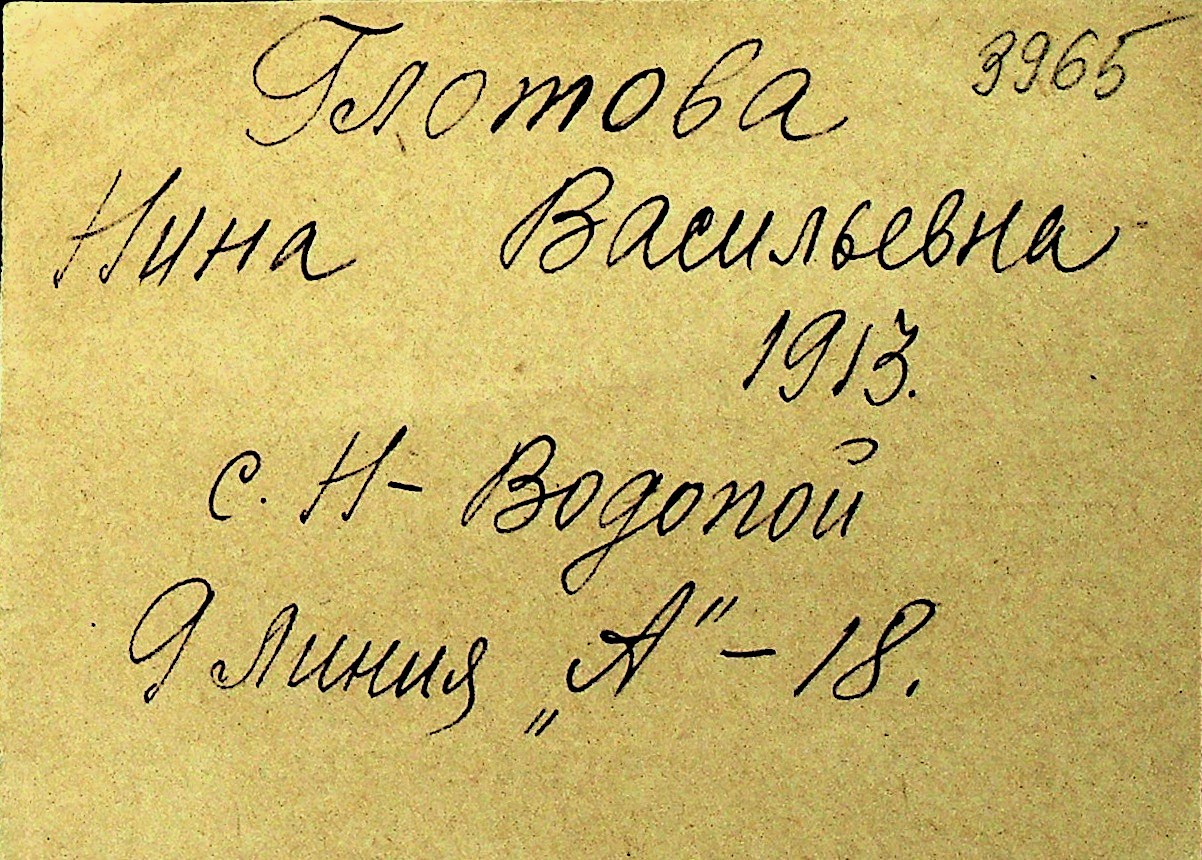 Глотова 3965
Нина Васильевна
1913.
с. Н- Водопой
9 линия „А" - 18.